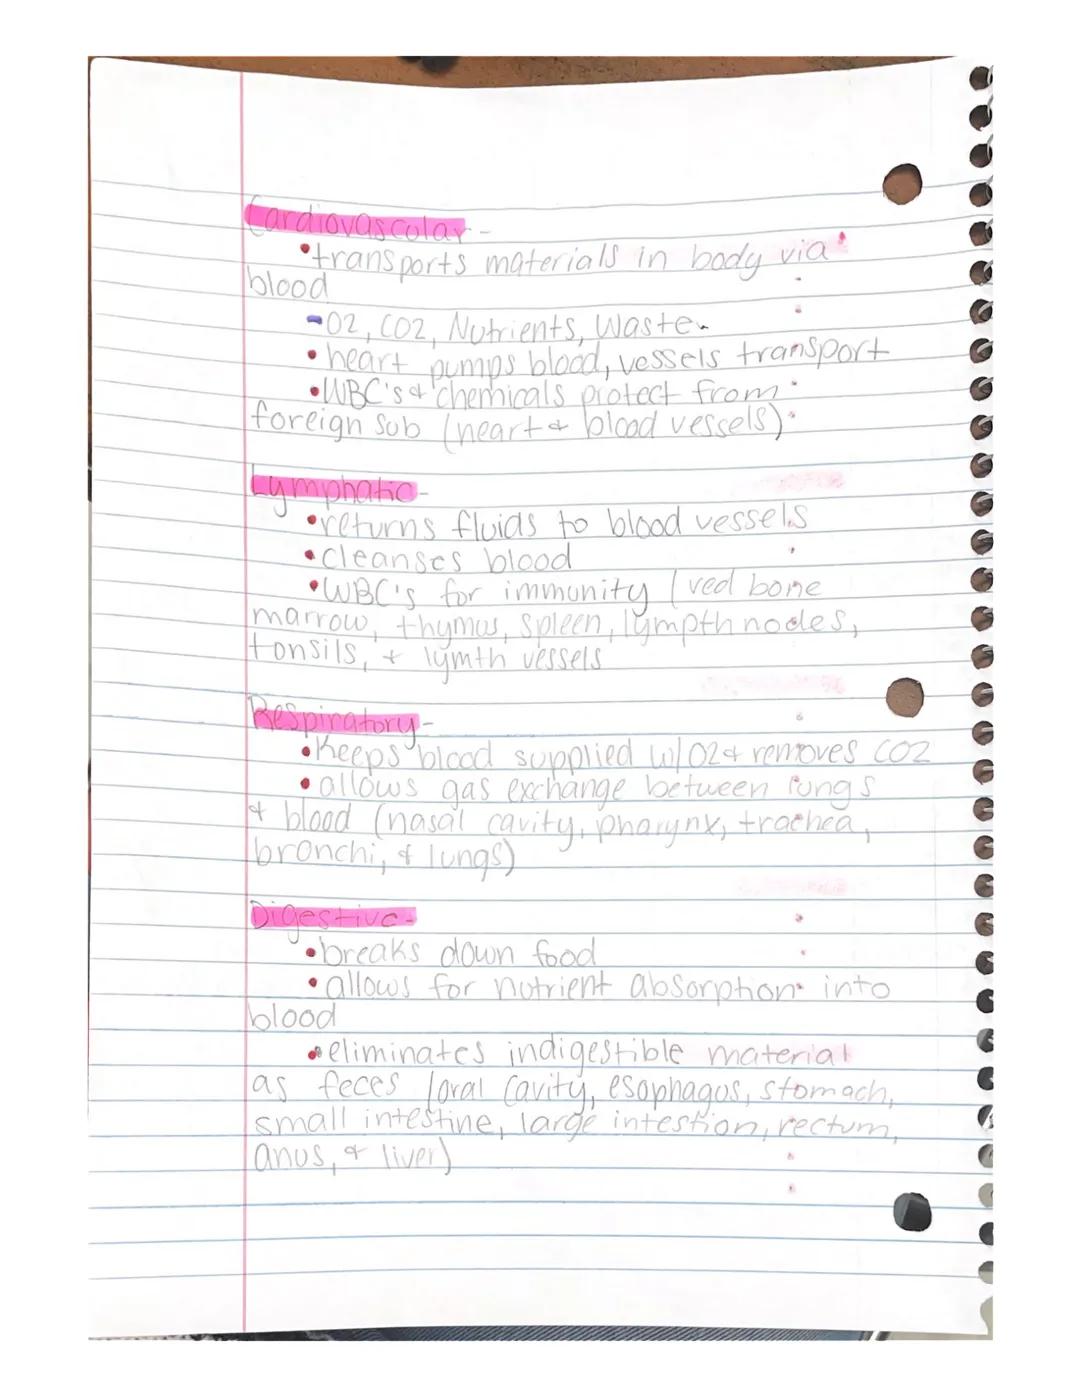 Cardiovascular-
•transports materials in body via
blood
-O2, CO2, Nutrients, Waste
•heart pumps blood, vessels transport
•WBC's & chemicals protect from
foreign sub (heart & blood vessels)
Lymphatic-
•returns fluids to blood vessels
•cleanses blood
•WBC's for immunity (red bone
marrow, thymus, spleen, lympth nodes,
tonsils, + lymth vessels
Respiratory-
•Keeps blood supplied w/ O2 & removes CO2
•allows gas exchange between lungs
& blood (nasal cavity, pharynx, trachea,
bronchi, & lungs)
Digestive-
•breaks down food
•allows for nutrient absorption into
blood
•eliminates indigestible material
as feces (oral cavity, esophagus, stomach,
small intestine, large intestion, rectum,
anus, & liver)